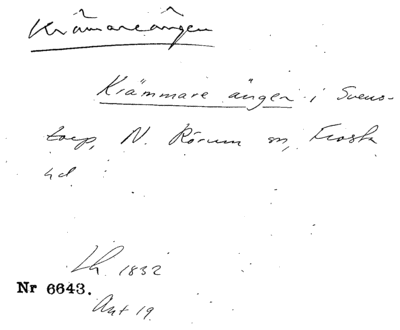 Krämareängen
Krämmare ängen i Svens-
torp, N. Rörum sn, Frosta
hd
Lh. 1832
Nr 6643.
Akt 19